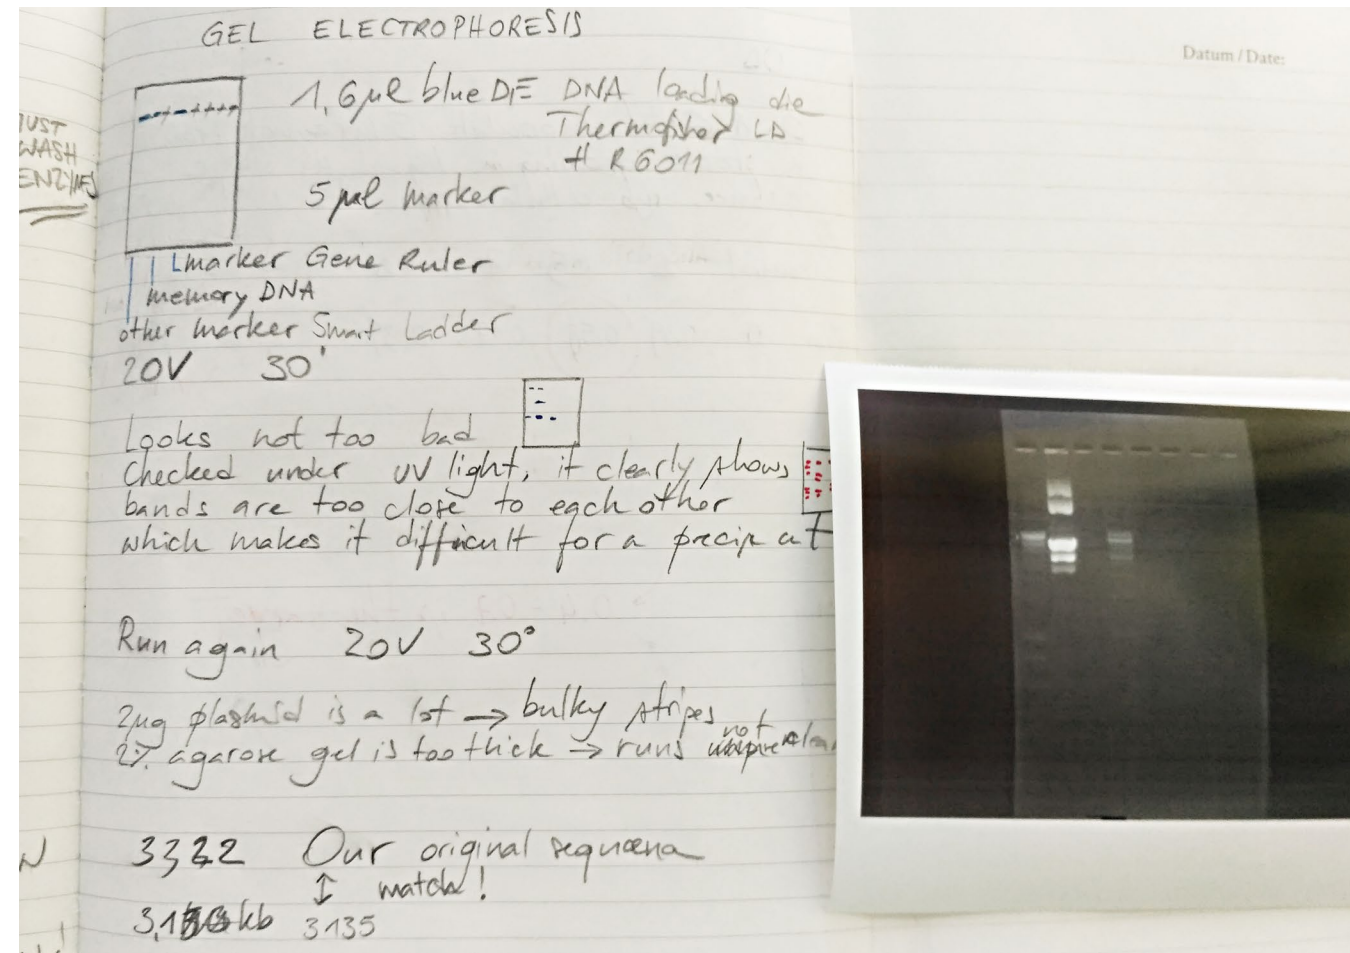 GEL ELECTROPHORESIS
Datum / Date:
1,6µl blue DNA loading die
Thermofisher LD
# R6011
JUST
WASH
ENZYMES
5 µl marker
marker Gene Ruler
memory DNA
other marker Smart Ladder
20V 30'
Looks not too bad
Checked under UV light, it clearly shows
bands are too close to each other
which makes it difficult for a precip at
Run again 20V 30°
2µg plasmid is a lot → bulky stripes
2% agarose gel is too thick → runs not
3322 Our original
↕ match!
kb 3135